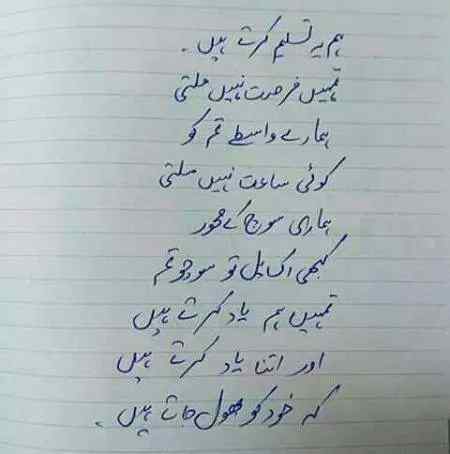 ہم یہ تسلیم کرتے ہیں۔
تمہیں فرصت نہیں ملتی
ہمارے واسطے تم کو
کوئی ساعت نہیں ملتی
ہماری سوچ کے محور
کبھی اک پل تو سوچو تم
تمہیں ہم یاد کرتے ہیں
اور اتنا یاد کرتے ہیں
کہ خود کو بھول جاتے ہیں۔